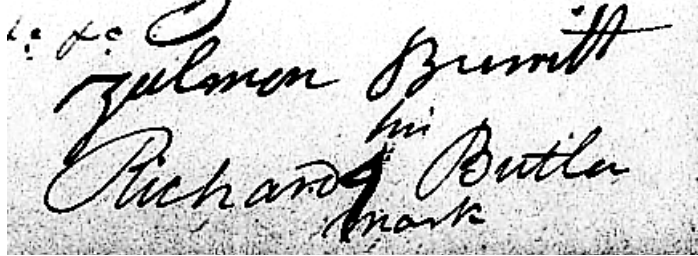 Zulmon Burritt
his
Richard Butler
mark